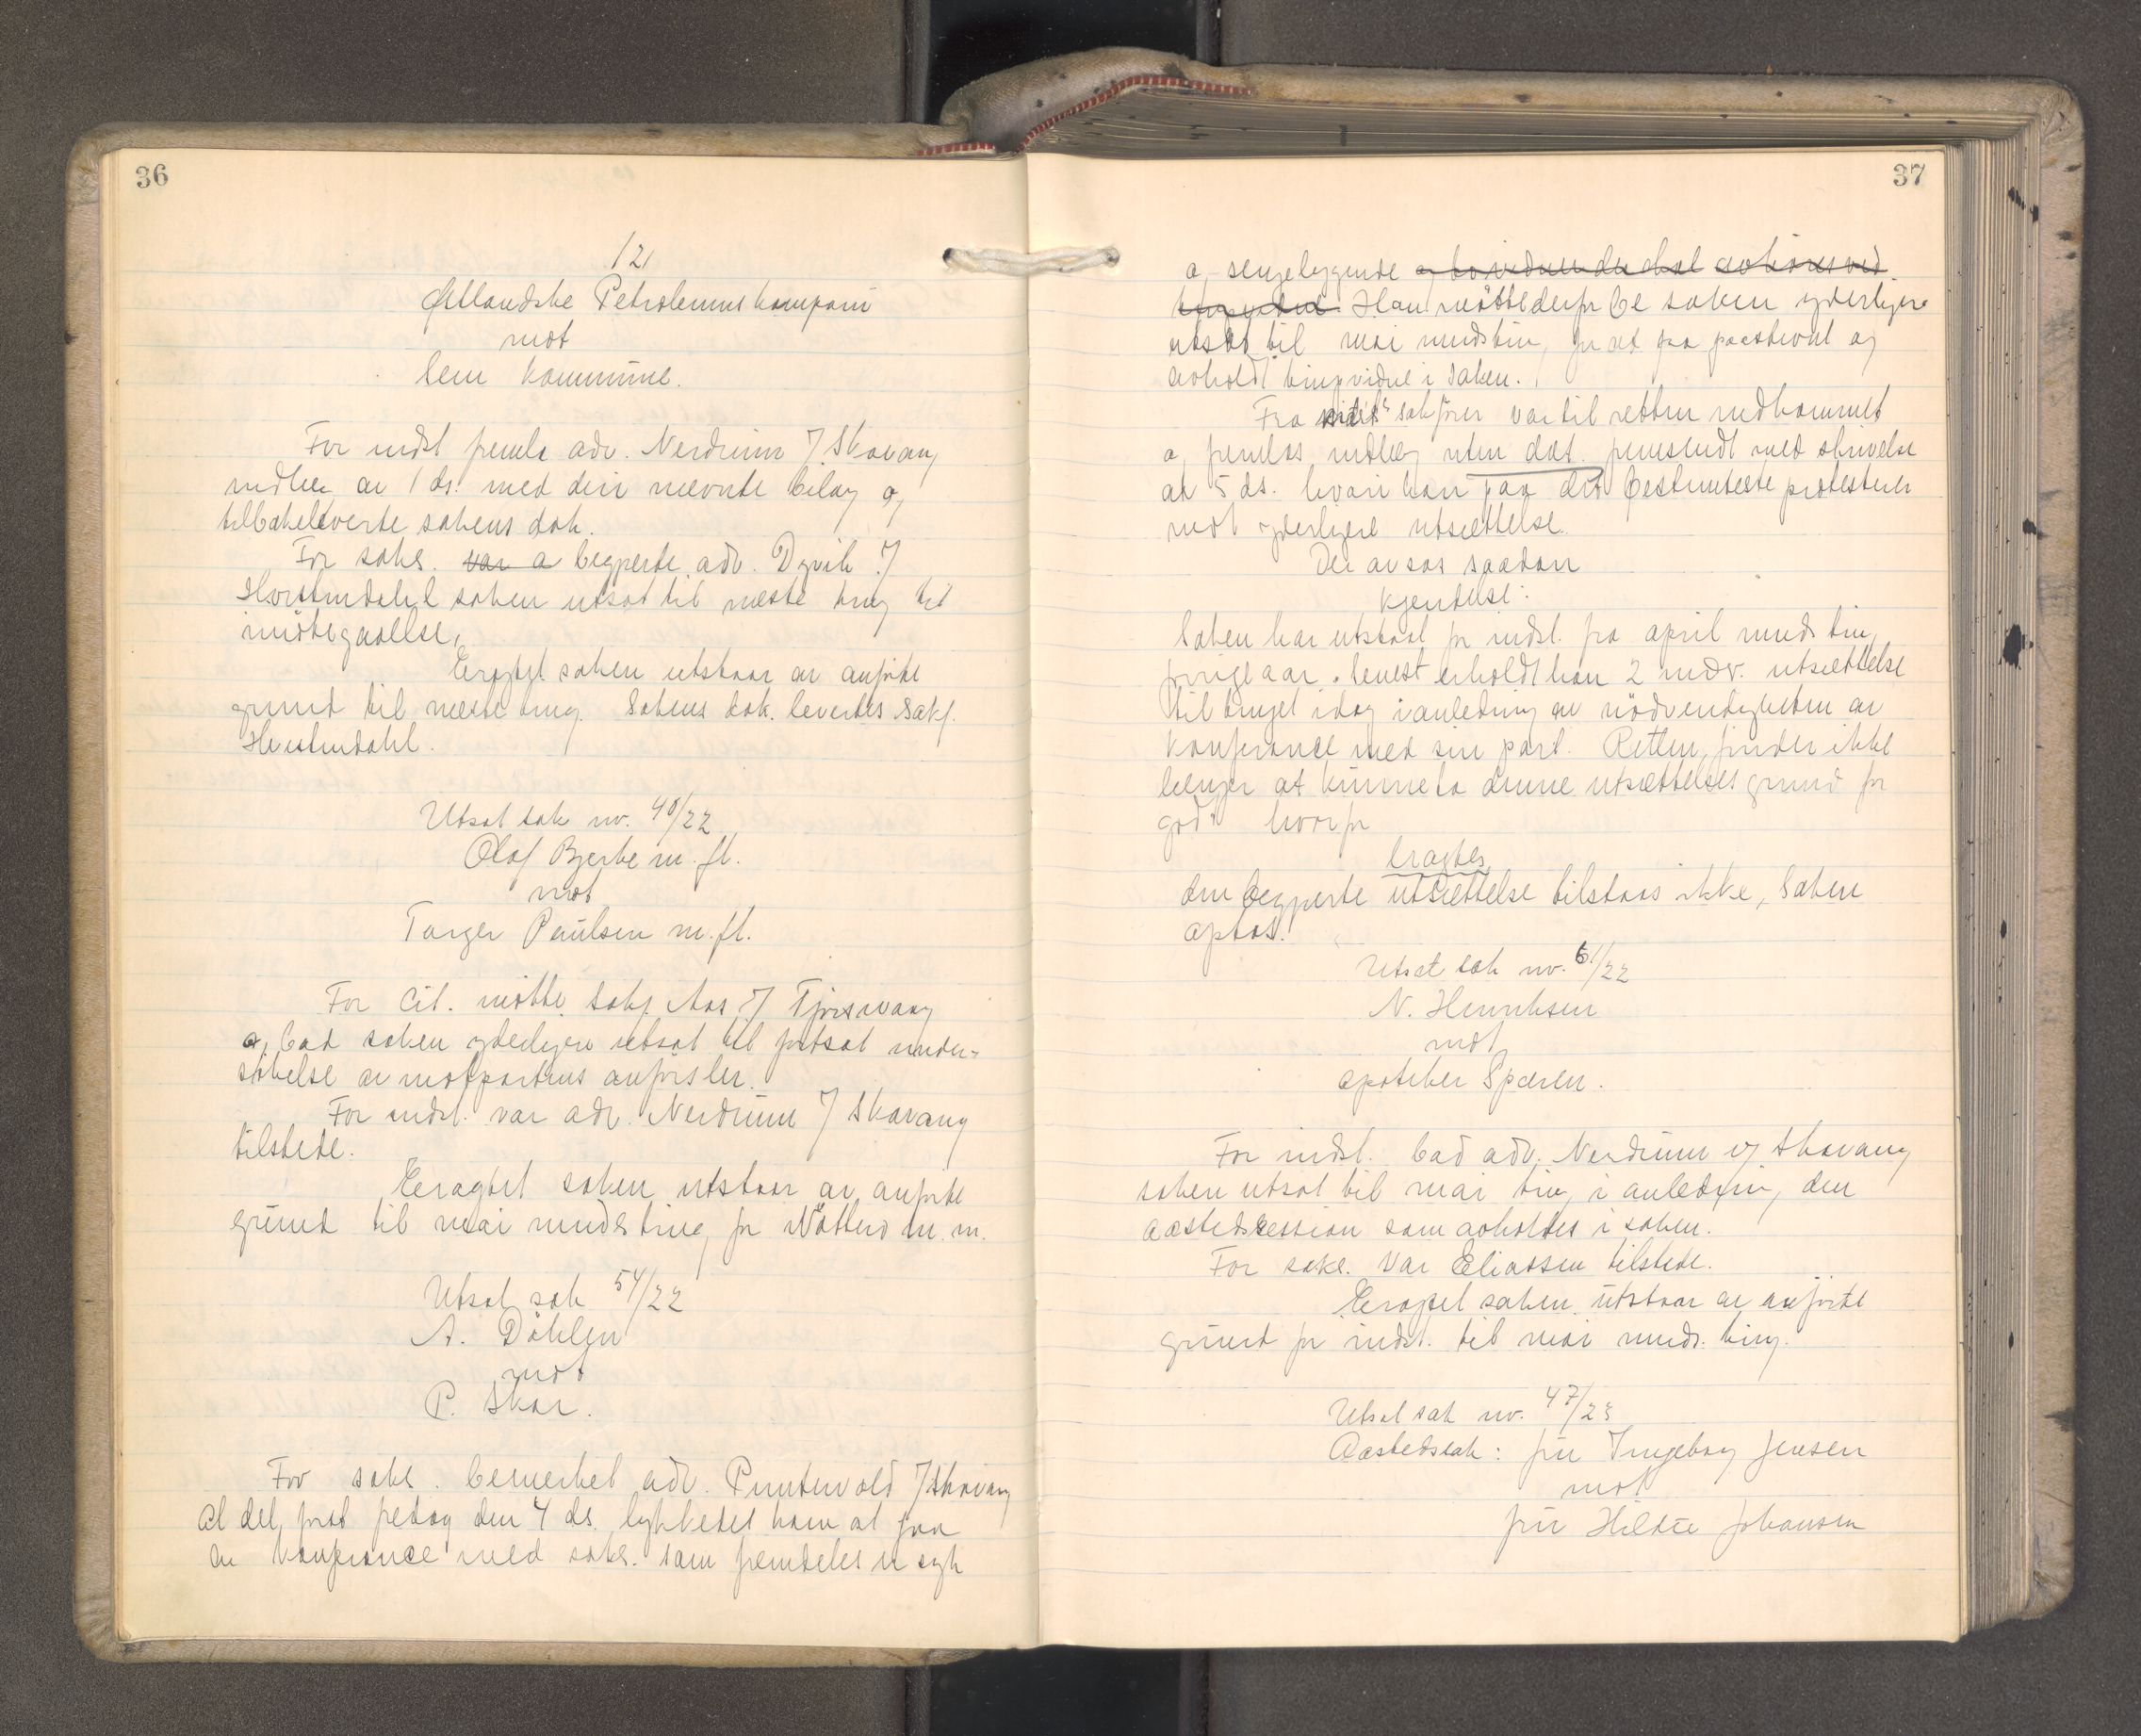 36
12/
Østlandske Petroleumskompani
mot
Sem kommune.
For indst. freml. adv. Nerdrum v/ Skavang
indlæg av 1 ds. med deri nævnte bilag og
tilbakeleverte sakens dok.
For saks. var a begjærte adv. Dyvik v/
saken utsat til næste ting til
imøtegaaelse,
Eragtet saken utstaar av anførte
grund til næste ting. Sakens dok. levertes sakf.
Utsat sak nr. 40/22
Olaf Bjerke m. fl.
mot
Torger Paulsen m. fl.
For cit. møtte sakf. Aas v/ Tjersvaag
og bad saken yderligere utsat til fortsat under-
søkelse av motpartens anførsler.
For indst. var adv. Nerdrum v/ Skavang
tilstede.
Eragtet saken utstaar av anførte
grund til mai mndsting for Nøtterø m. m.
Utsat sak 54/22
A. Døhlen
mot
P. Skar.
For saks. bemerket adv. Puntervold v/ Skavang
at det først fredag den 4 ds. lykkedes ham at faa
en konferance med saks. som fremdeles er syk
37
og sengeliggende
Han møtte derfor be saken yderligere
utsat til mai mndsting, for at faa paastevnt og
avholdt tingsvidne i saken.
Fra sakfører var til retten indkommet
og fremlas indlæg uten dat. fremsendt med skrivelse
av 5 ds. hvori han paa det bestemteste protesterer
mot yderligere utsættelse.
Der avsas saadan
kjendelse:
Saken har utstaat for indst. fra april mnds ting
forrige aar. Senest erholdt han 2 mdr. utsættelse
til tinget idag i anledning av nødvendigheten av
konferance med sin part. Retten finder ikke
længer at kunne ta denne utsættelsesgrund for
god, hvorfor
eragtes
den begjærte utsættelse tilstaaes ikke, saken
optas.
Utsat sak nr. 61/22
N. Henriksen
mot
apoteker Sparen.
For indst. bad adv. Nerdrum v/ Skavang
saken utsat til mai ting i anledning den
aastedssession som avholdtes i saken.
For saks. var Eliassen tilstede.
Eragtet saken utstaar av anførte
grund for indst. til mai mnds. ting.
Utsat sak nr. 47/23
Aastedssak: fru Ingeborg Jensen
mot
fru Hilda Johansen